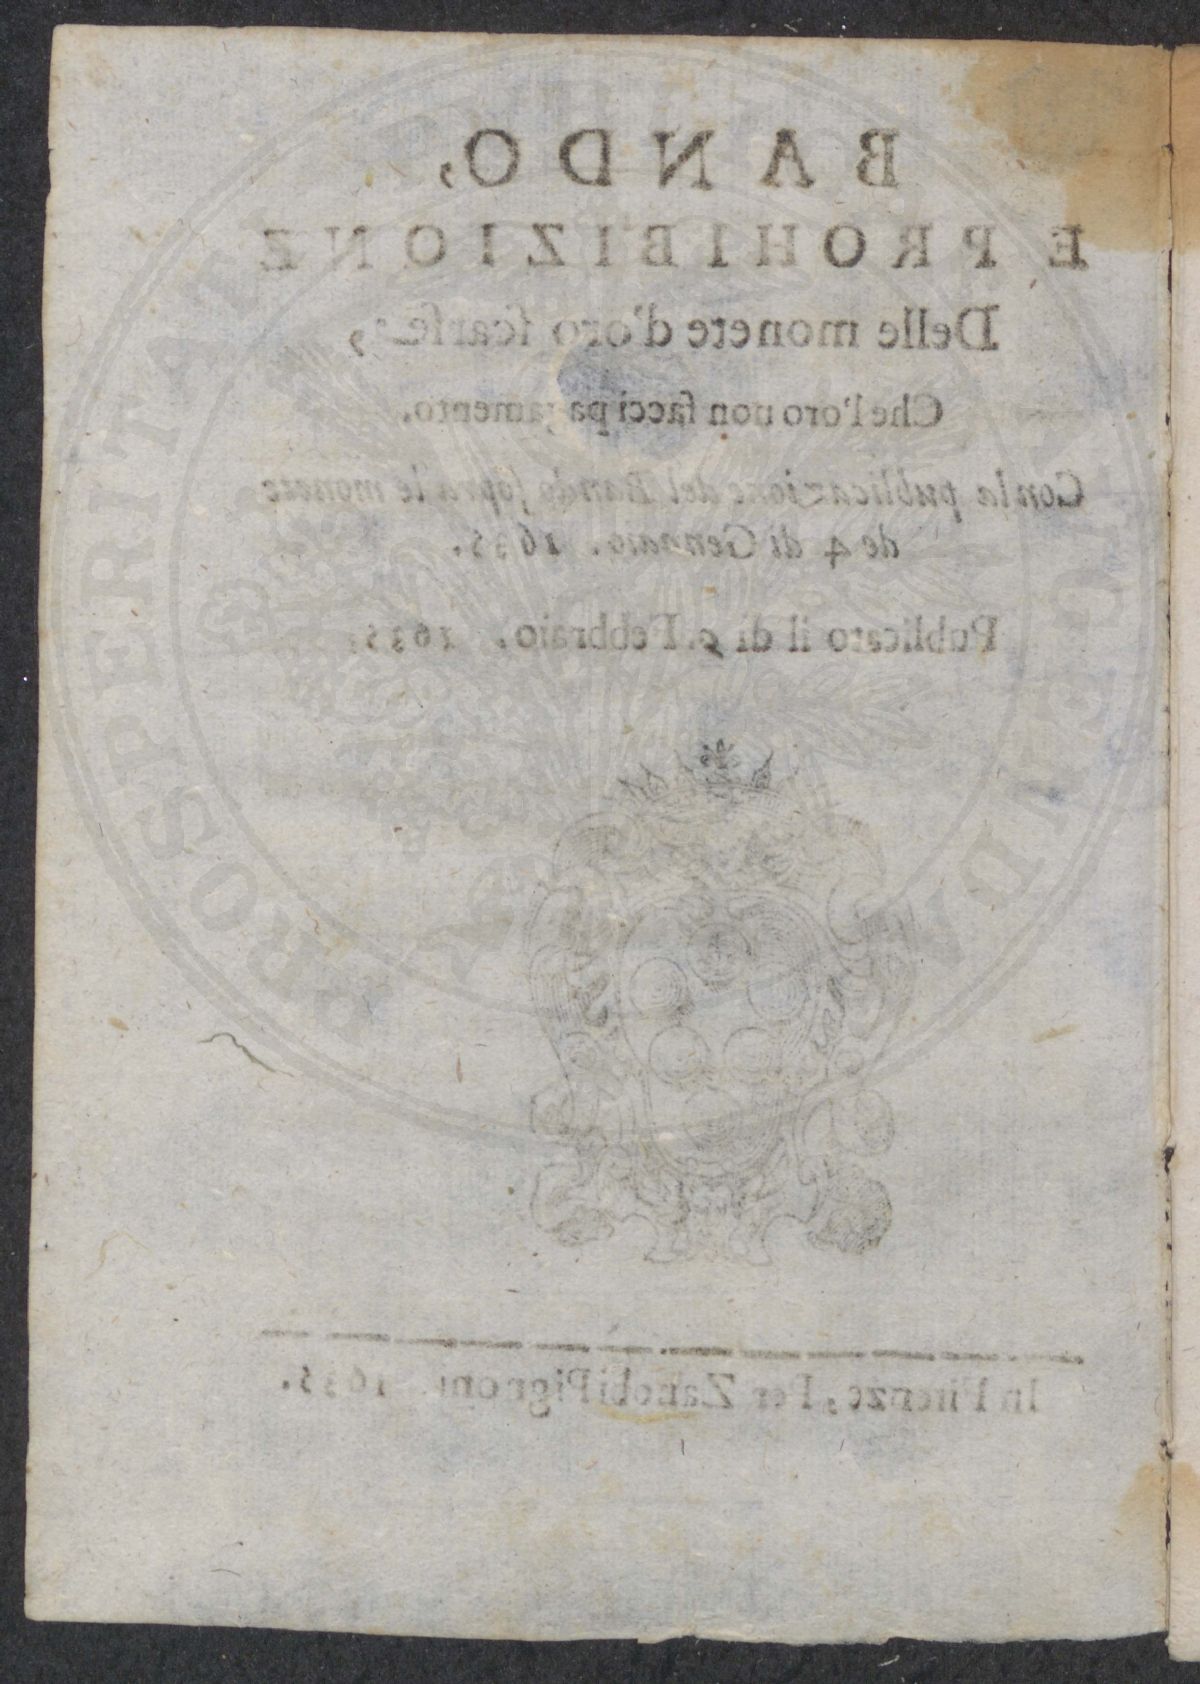 BANDO,
E PROHIBIZIONE
Delle monete d'oro ſcarſe,
Che l'oro non facci pagamento.
Con la publicazione del Bando ſopra le monete
de 4 di Gennaio. 1635.
Publicato il dì 9. Febbraio. 1635.
In Firenze, Per Zanobi Pignoni. 1635.
PROSPERITATI AUGENDAE